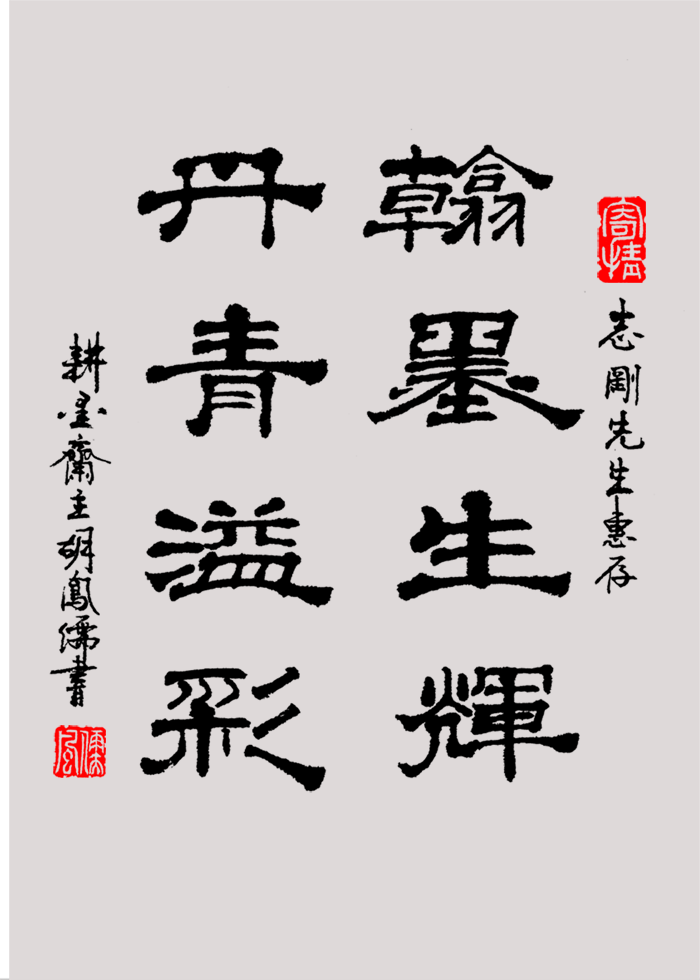 寄情
志剛先生惠存
翰墨生輝
丹青溢彩
耕墨齋主胡鳳儒書